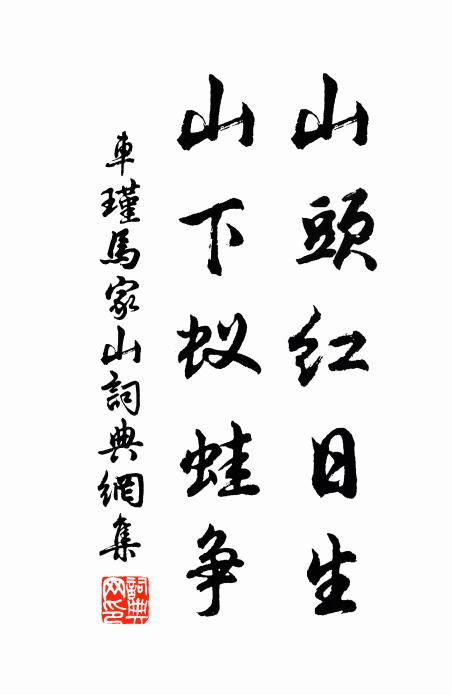 山頭紅日生
山下蚁蛙争
車瑾馬家山詞典網集
詞典网印